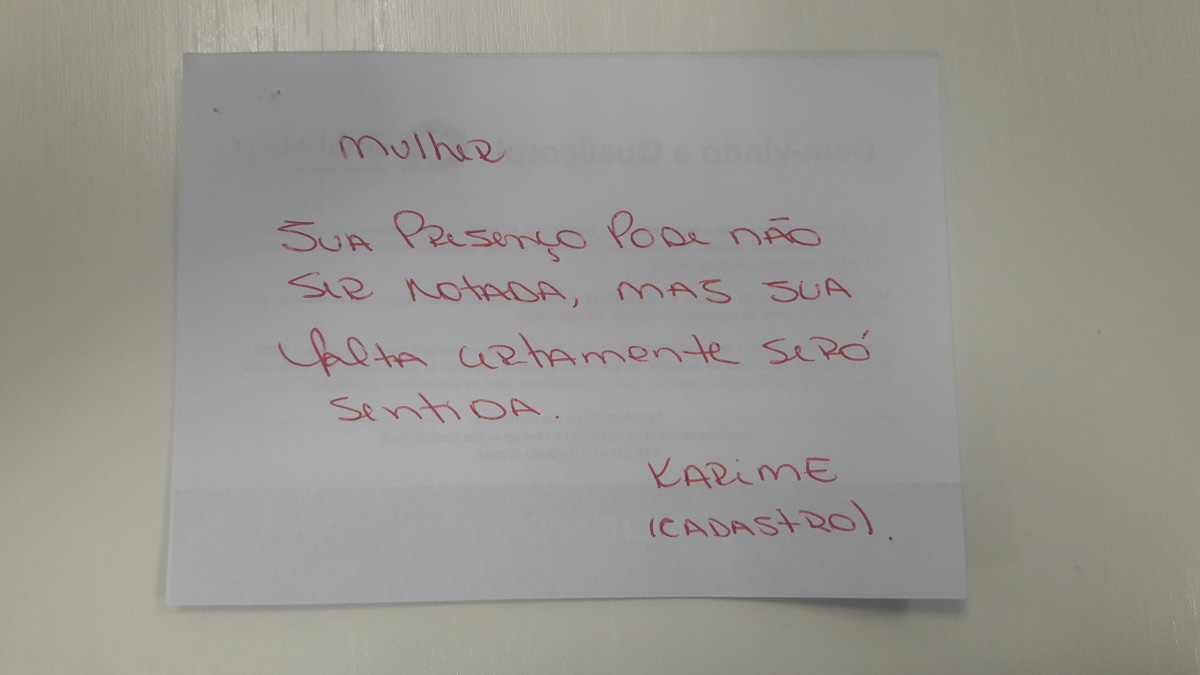 Mulher
Sua Presença Pode não
ser notada, mas sua
falta certamente será
sentida.
Karime
(Cadastro).